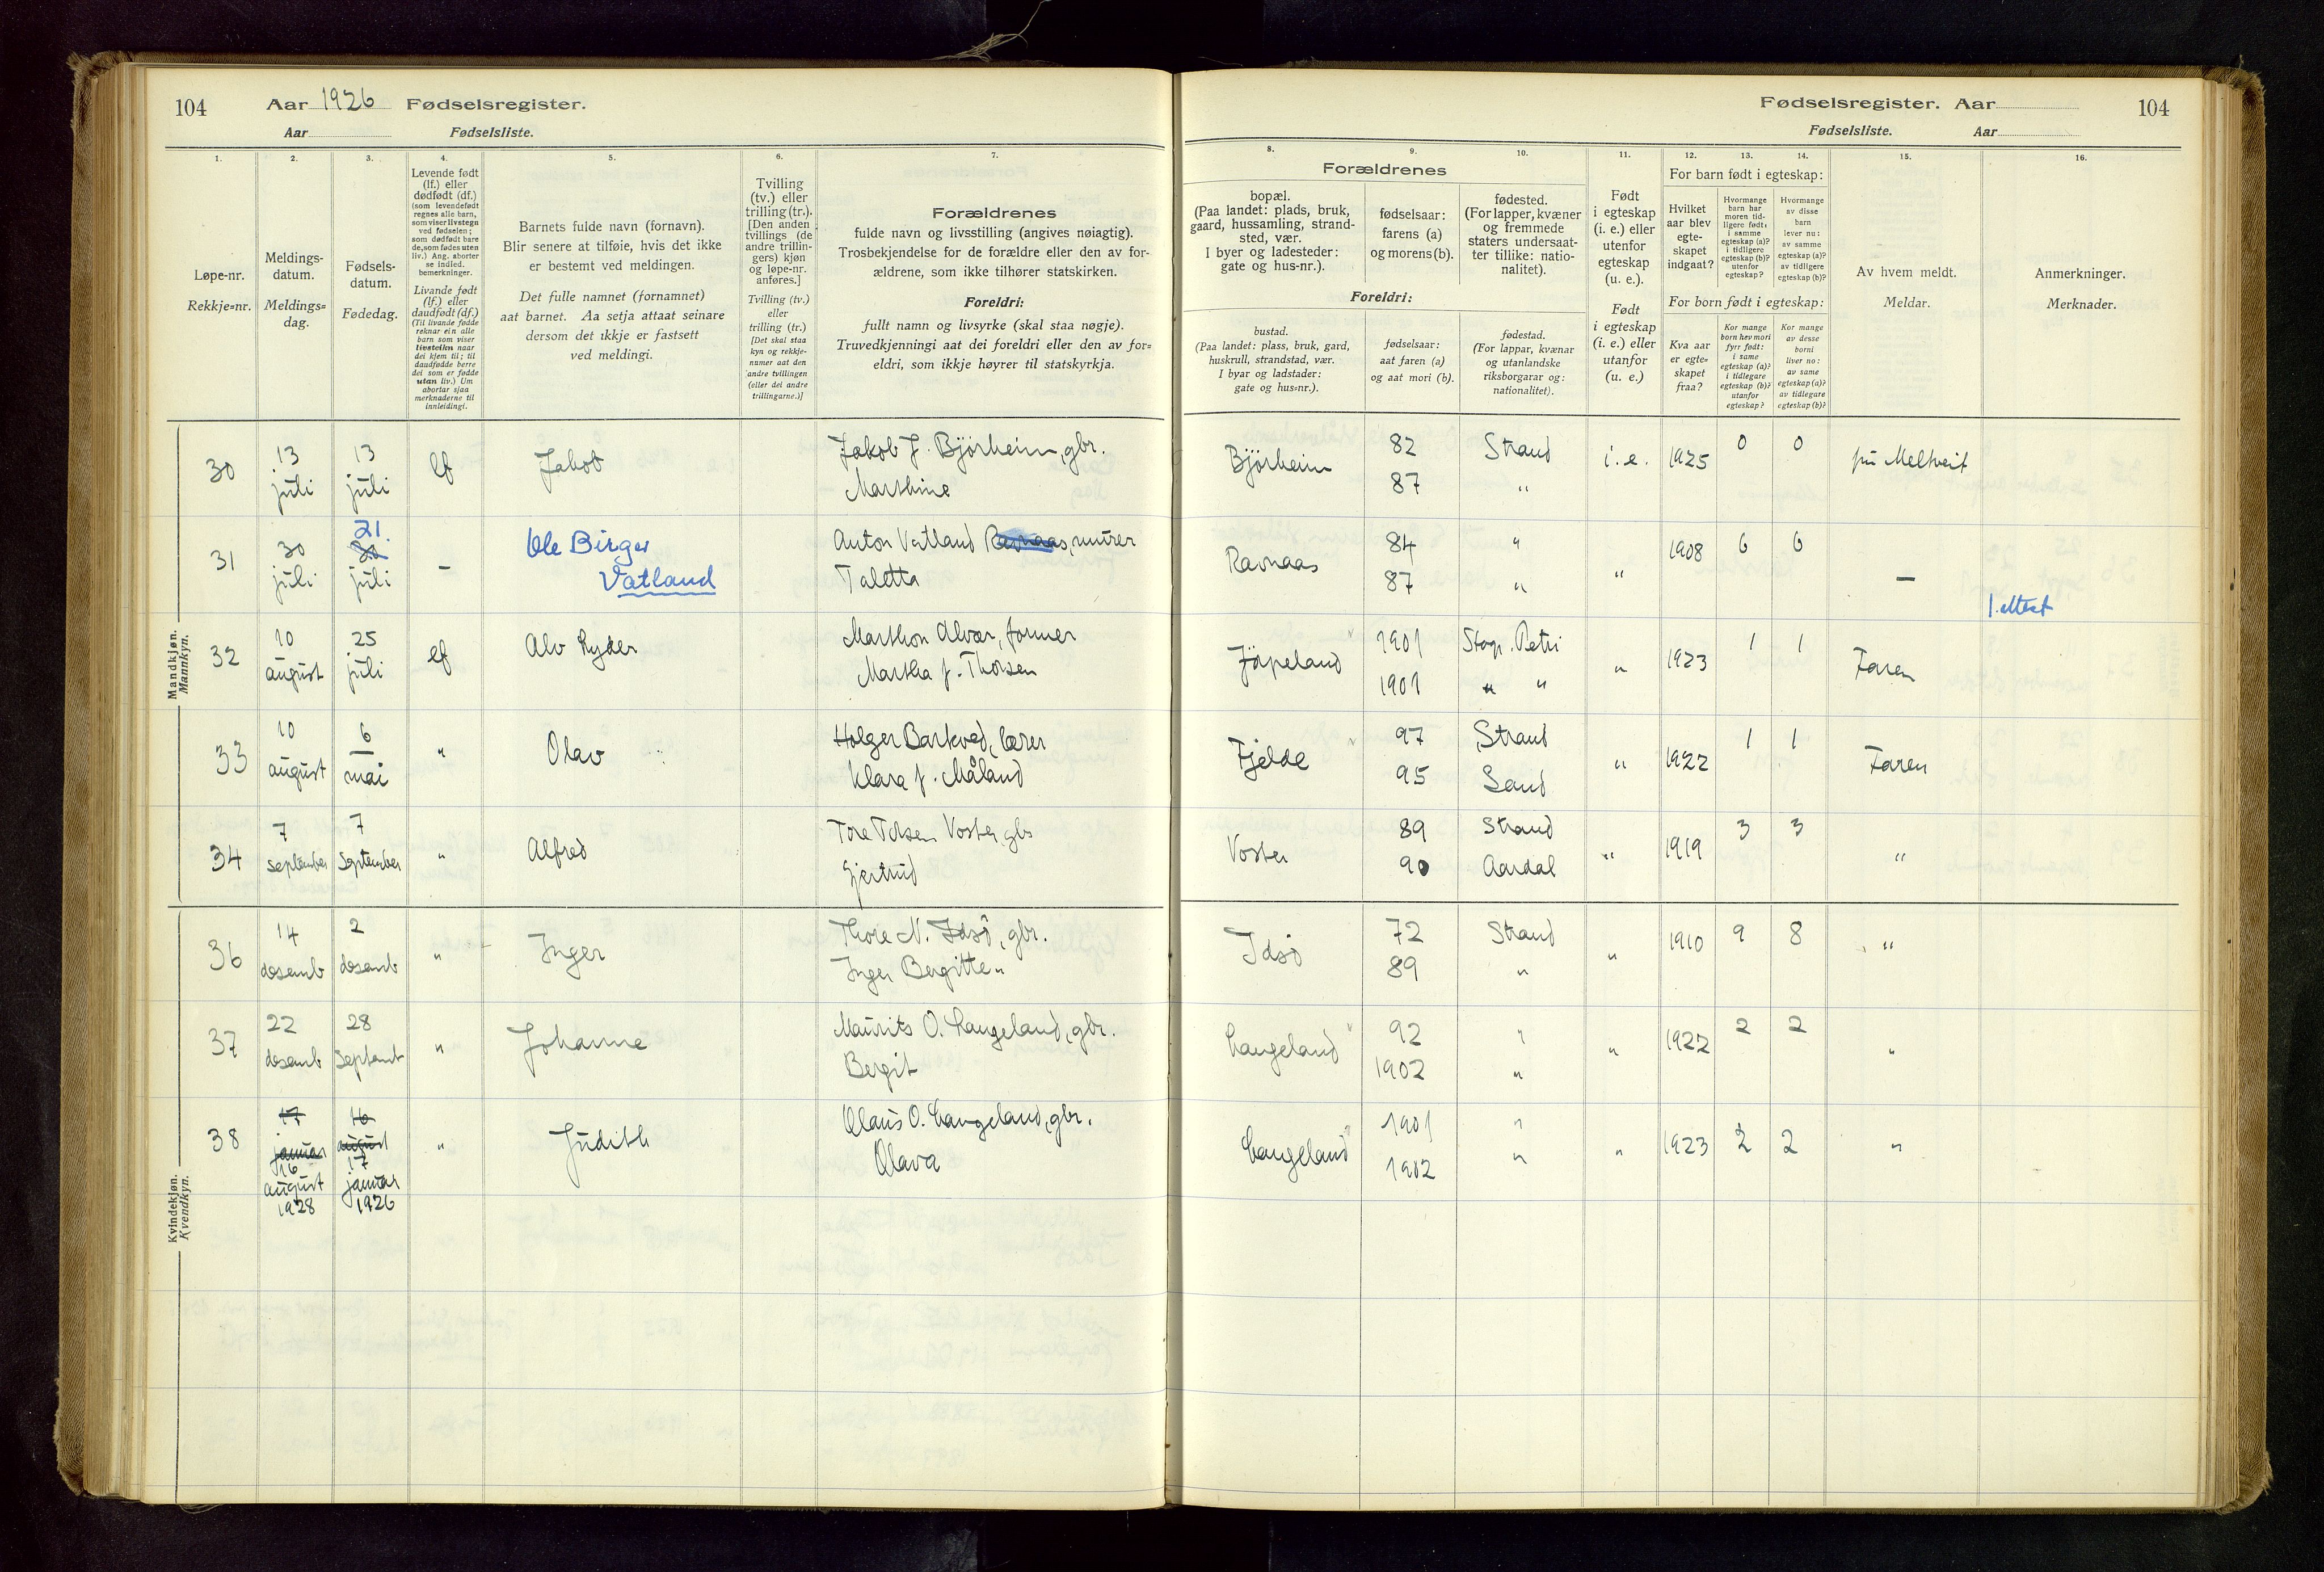 104 Aar 1926 Fødselsregister.
Aar Fødselsliste.
Fødselsregister. Aar 104
Fødselsliste. Aar
1. 2. 3. 4. 5. 6. 7.
Løpe-nr.
Rekkje=nr.
Meldings-
datum.
Meldings=
dag.
Fødsels-
datum.
Fødedag.
Levende født
(lf.) eller
dødfødt (df.)
(som levendefødt
regnes alle barn,
som viser livstegn
ved fødselen;
som dødfødt bare
de, som fødes uten
liv.) Ang. aborter
se indled.
bemerkninger.
Livande født
(lf.) eller
daudfødt (df.)
(Til livande fødde
reknar ein alle
barn som viser
livsteikn naar
dei kjem til; til
daudfødde berre
dei som er fødde
utan liv.) Um
abortar sjaa
merknaderne til
innleidingi.
Barnets fulde navn (fornavn).
Blir senere at tilføie, hvis det ikke
er bestemt ved meldingen.
Det fulle namnet (fornamnet)
aat barnet. Aa setja attaat seinare
dersom det ikkje er fastsett
ved meldingi.
Tvilling
(tv.) eller
trilling (tr.).
[Den anden
tvillings (de
andre trillin-
gers) kjøn
og løpe-nr.
anføres.]
Tvilling (tv.)
eller
trilling (tr.)
[Det skal staa
kyn og rekkje-
numer aat den
andre tvillingen
(eller dei andre
trillingarne.)]
Forældrenes
fulde navn og livsstilling (angives nøiagtig).
Trosbekjendelse for de forældre eller den av for-
ældrene, som ikke tilhører statskirken.
Foreldri:
fullt namn og livsyrke (skal staa nøgje).
Truvedkjenningi aat dei foreldri eller den av for=
eldri, som ikkje høyrer til statskyrkja.
8. 9. 10. 11. 12. 13. 14. 15. 16.
Forældrenes
bopæl.
(Paa landet: plads, bruk,
gaard, hussamling, strand-
sted, vær.
I byer og ladesteder:
gate og hus-nr.).
fødselsaar:
farens (a)
og morens (b).
fødested.
(For lapper, kvæner
og fremmede
staters undersaat-
ter tillike: natio-
nalitet).
Foreldri:
bustad.
(Paa landet: plass, bruk, gard,
huskrull, strandstad, vær.
I byar og ladstader:
gate og hus=nr.).
fødselsaar:
aat faren (a)
og aat mori (b).
fødestad.
(For lappar, kvænar
og utanlandske
riksborgarar og:
nationalitet).
Født
i egteskap
(i. e.) eller
utenfor
egteskap
(u. e.).
Født
i egteskap
(i. e.) eller
utanfor
(u. e.)
For barn født i egteskap:
Hvilket
aar blev
egte-
skapet
indgaat?
Hvormange
barn har
moren tid-
ligere født:
i samme
egteskap (a)?
i tidligere
egteskap (b)?
utenfor
egteskap?
Hvormange
av disse
barn
lever nu:
av samme
egteskap (a)?
av tidligere
egteskap (b)?
For born født i egteskap:
Kva aar
er egte=
skapet
fraa?
Kor mange
born hev mori
fyrr født:
i same
egteskap (a)?
i tidlegare
egteskap (b)?
utanfor
egteskap?
Kor mange
av desse
borni
liver no:
av same
egteskap (a)?
av tidlegare
egteskap (b)?
Av hvem meldt.
Meldar.
Anmerkninger.
Merknader.
Mandkjøn.
Mannkyn.
30 13 juli 13 juli lf Jakob Jakob J. Bjørheim, gbr. Bjørheim 82 Strand i. e. 1925 0 0
Marthine 87 "
31 30 juli 21. 30 juli - Ole Birger Vatland Anton Vatland Ravnaas, murer Ravnaas 84 " " 1908 6 6 —
Taletta 87 "
1. attest
32 10 august 25 juli lf Alv Ryder Marthon Alvær, former Jørpeland 1901 Stvgr. Petri " 1923 1 1 Faren
Martha f. Thorsen 1901 " "
33 10 august 6 mai " Olav Holger Barkved, lærer Fjelde 97 Strand " 1922 1 1 Faren
Klara f. Måland 95 Sand
34 7 september 7 september " Alfred Tore Torsen Voster, gbr Voster 89 Strand " 1919 3 3 "
Gjertrud 90 Aardal
Kvindekjøn.
Kvendkyn.
36 14 desemb 2 desemb " Inger Thore N. Idsø, gbr. Idsø 72 Strand " 1910 9 8 "
Inger Bergitte " 89 "
37 22 desemb 28 septemb " Johanne Maurits O. Langeland, gbr. Langeland 92 " " 1922 2 2 "
Bergit 1902 "
38 17 januar 16 august 1928 16 august 17 januar 1926 " Judith Olaus O. Langeland, gbr. Langeland 1901 " " 1923 2 2 "
Olava 1902 "